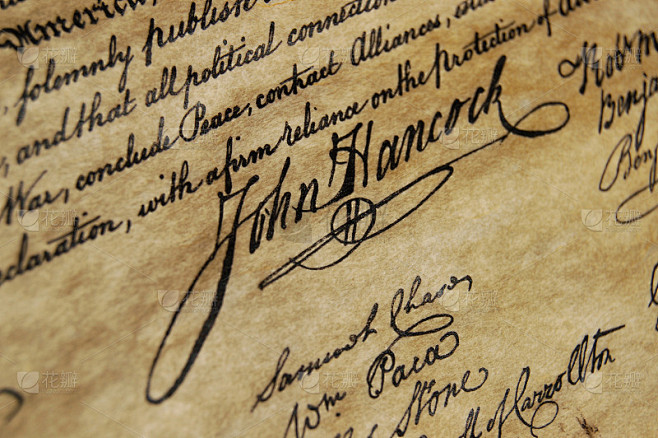 America,
, solemnly publish
, and that all political connection
War, conclude Peace, contract Alliances,
eclaration, with a firm reliance on the Protection of
John Hancock
Rob
Benja
Ben
Samuel Chase
Wm Paca
Stone
of Carrollton
花瓣